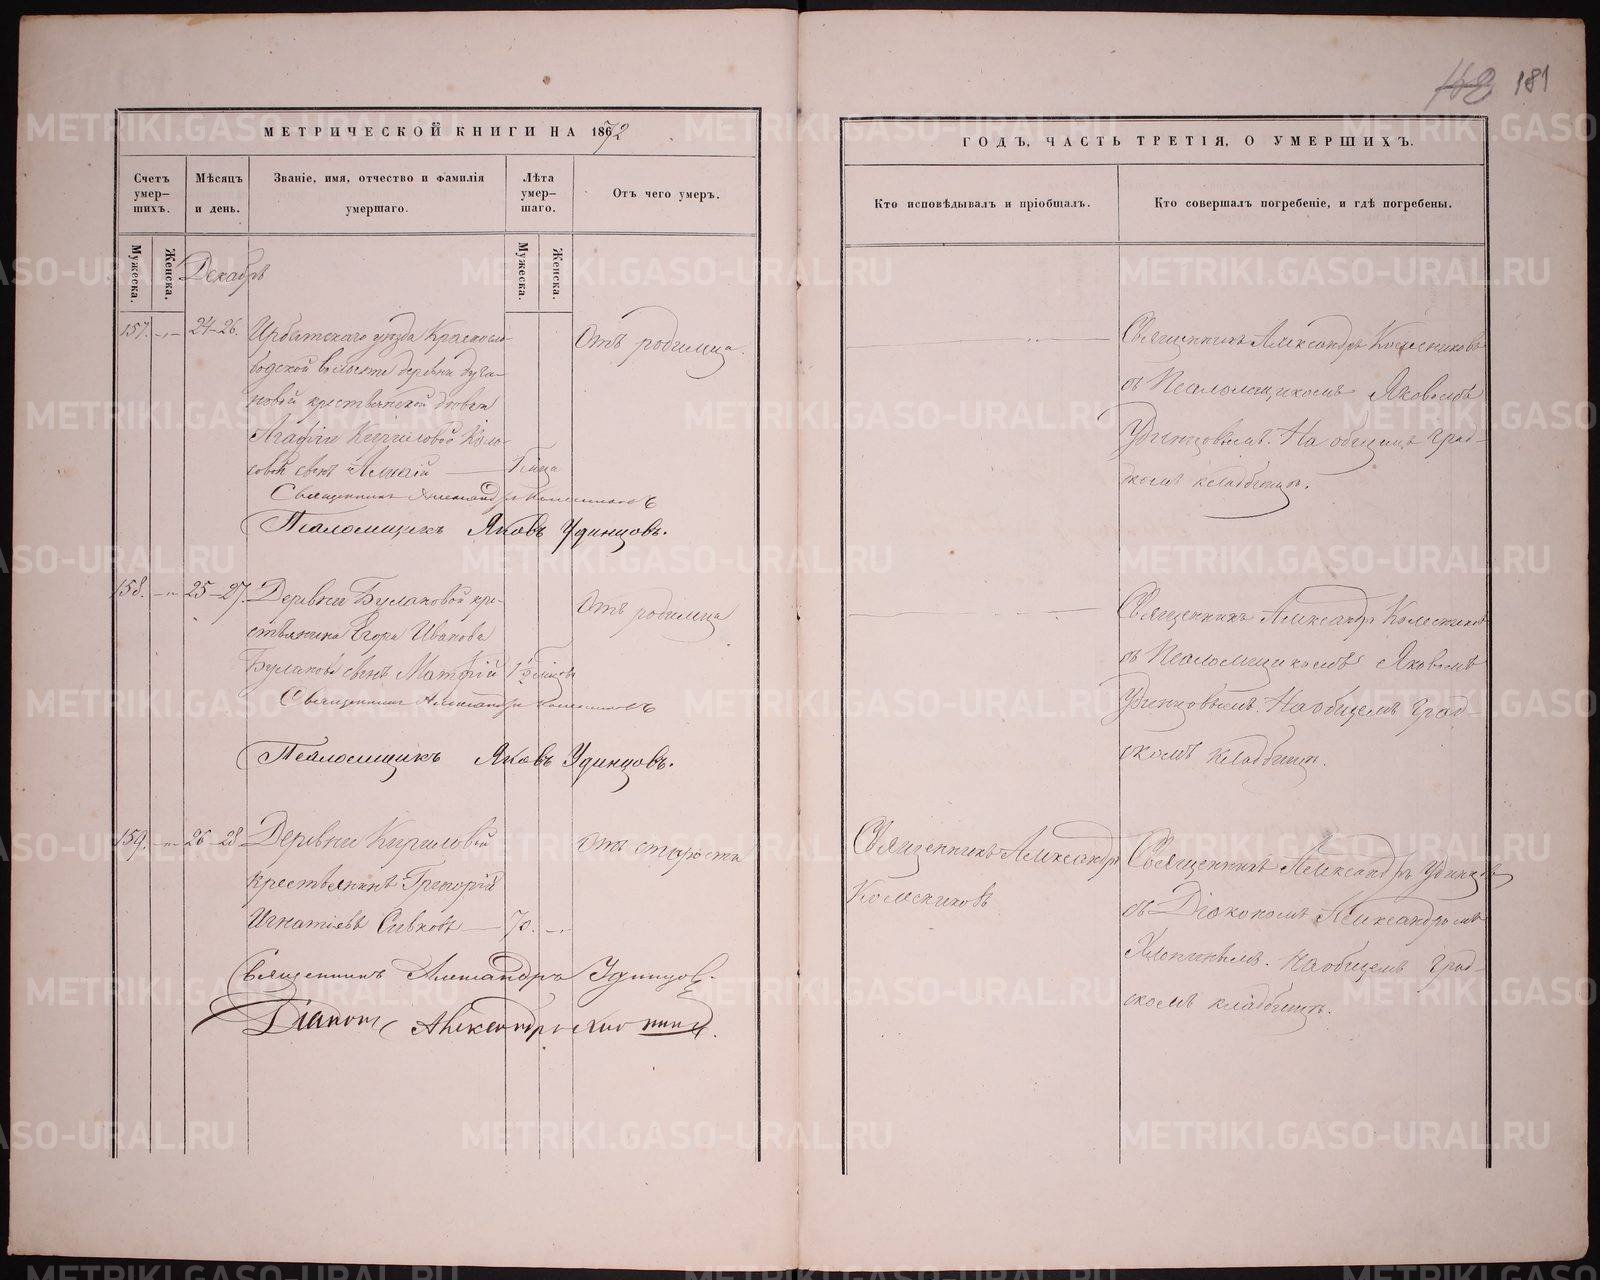 182 181
МЕТРИЧЕСКОЙ КНИГИ НА 1872
ГОДЪ, ЧАСТЬ ТРЕТІЯ, О УМЕРШИХЪ.
Счетъ умер-шихъ.
Мѣсяцъ и день.
Званіе, имя, отчество и фамилія умершаго.
Лѣта умер-шаго.
Отъ чего умеръ.
Кто исповѣдывалъ и пріобщалъ.
Кто совершалъ погребеніе, и гдѣ погребены.
Мужеска.
Женска.
Мужеска.
Женска.
Декабрь
157. 24-26. Ирбитскаго уѣзда Краснос-
лободской волости деревни Буга-
новой крестьянской
Агафіи Кириловой Коло-
совой сынъ Алексій
Священникъ Александръ Колесниковъ
Псаломщикъ Яковъ Удинцовъ.
Отъ родимца.
Священникъ Александръ Колесниковъ
съ Псаломщикомъ Яковомъ
Удинцовымъ. На общемъ град-
скомъ кладбищѣ.
158. 25-27. Деревни Булановой кре-
стьянина Егора Иванова
Буланова сынъ Матфій
Священникъ Александръ Колесниковъ
Псаломщикъ Яковъ Удинцовъ.
Отъ родимца
Священникъ Александръ Колесниковъ
съ Псаломщикомъ Яковомъ
Удинцовымъ. На общемъ град-
скомъ кладбищѣ.
159. 26-28 Деревни Кириловой
крестьянинъ Григорій
Игнатіевъ Сивковъ 70.
Священникъ Александръ Удинцовъ.
Діаконъ Александръ Хлопинъ.
Отъ старости
Священникъ Александръ
Колесниковъ
Священникъ Александръ Удинцовъ
съ Діакономъ Александромъ
Хлопинымъ. На общемъ град-
скомъ кладбищѣ.
METRIKI.GASO-URAL.RU